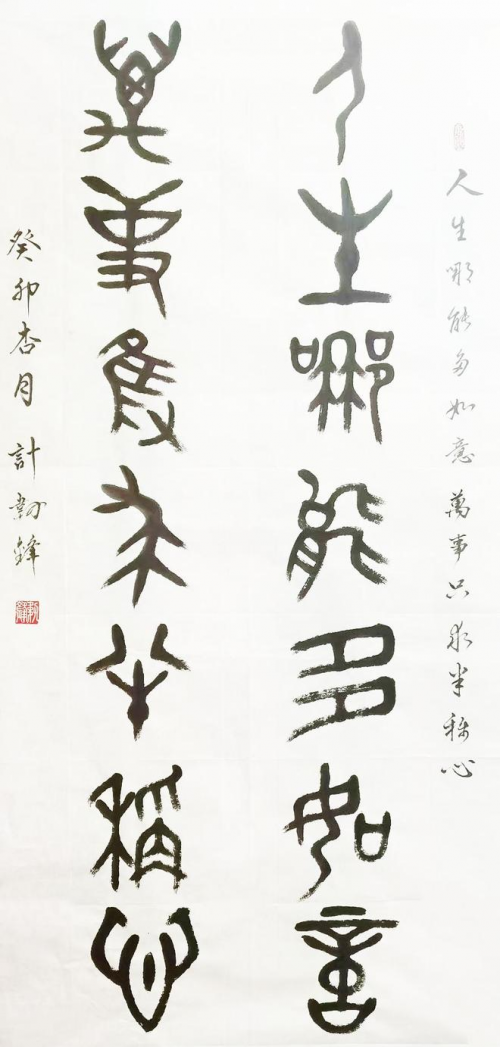 人生哪能多如意萬事只求半称心
人生哪能多如意
萬事隻求半稱心
癸卯杏月 計鋒